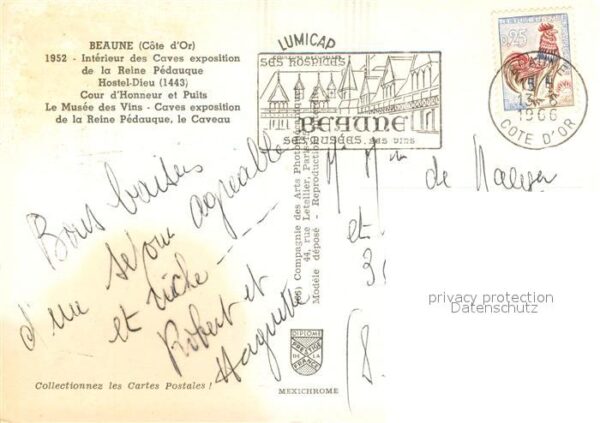 BEAUNE (Côte d'Or)
1952 - Intérieur des Caves exposition
de la Reine Pédauque
Hostel-Dieu (1443)
Cour d'Honneur et Puits
Le Musée des Vins - Caves exposition
de la Reine Pédauque, le Caveau
LUMICAP
SES HOSPICES
BEAUNE
SES MUSÉES, SES VINS
0,25
13-6
1966
COTE D'OR
Bons baisers
d'un séjour agréable
et riche
Robert et
Huguette
Compagnie des Arts Photomécaniques
44, rue Letellier, Paris
Modèle déposé - Reproduction
de
et
privacy protection
Datenschutz
DIPLOME
PRESTIGE
DE LA
FRANCE
MEXICHROME
Collectionnez les Cartes Postales !